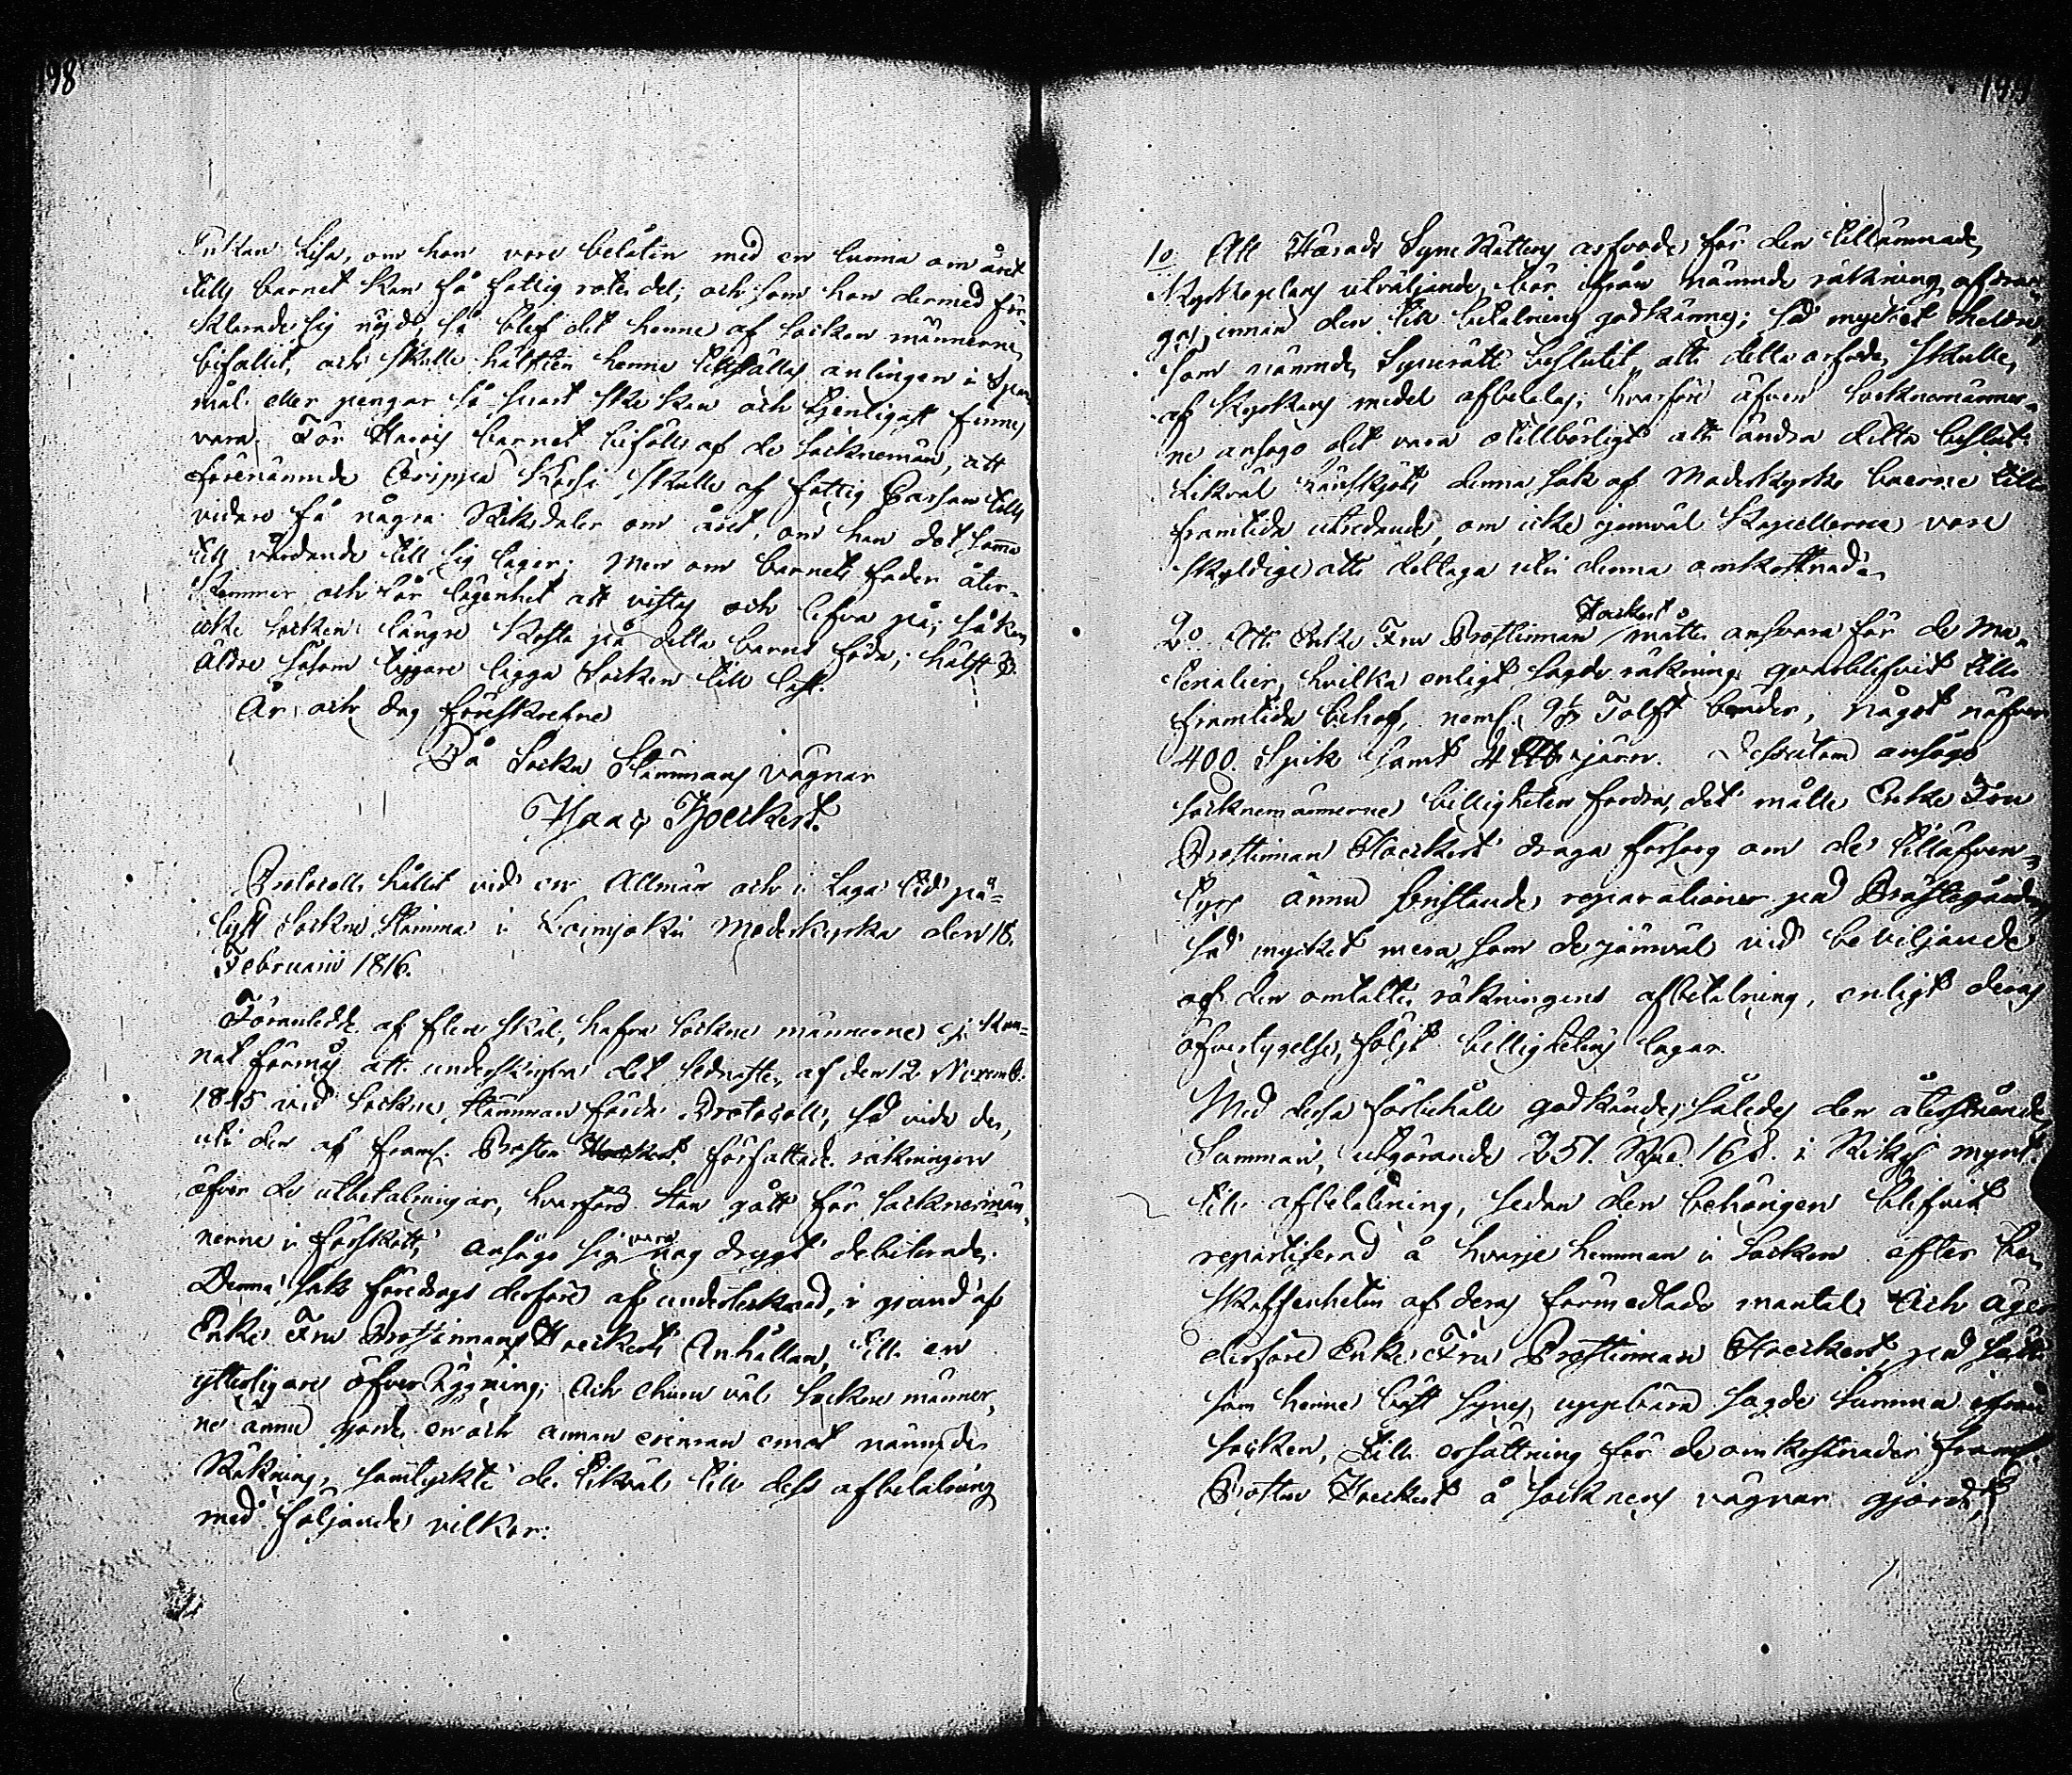 198
Enkan Lisa, om hon vore belåten med en tunna om året
till barnet kan få fattig rotes del; och som hon dermed för-
klarade sig nöjd, så blef det henne af Socken männerne
bifallit, och skulle hälften henne tillställas antingen i Span-
mål eller pengar så snart ske kan och tjenligast finnes
vara. För barnet bifölls af de Sockneman, att
förenämnde Kersi skulle af fattig Cassan till
vidare få några Riksdaler om året, om han det samma
till vårdande till sig tager; Men om barnets fader åter-
kommer och får lägenhet att vistas och lefva på, så kan
icke Socken längre kosta på detta barns föda; hälst D:
äldre såsom tiggare ligga Socken till last.
År och dag föreskrefne
På Sockne Stämmans vägnar
Isaac Hoeckert.
Protocoll hållit vid en Allmän och i Laga tid på-
lyst Sockne Stämma i Loimjoki Moderkyrka den 18.
Februarii 1816.
Föranledde af flere skäl, hafva Sockne männerne ej kun-
nat förmås att underskrifva det sednaste, af den 12 Novemb.
1815 vid Sockne Stämman förda Protocoll, så vida de,
uti den af framl. Prosten Hoeckert författade räkningen
öfver de utbetalningar, hvarföre Han gått för Socknemän-
nerne i förskott, ansågo sig vara nog drygt debiterade.
Denna sak föredrogs derföre af undertecknad, i grund af
Enke Fru Prostinnans Hoeckerts Anhållan, till en
ytterligare öfverläggning; Och ehuru väl Sockne männer-
ne ännu gjorde en och annan erinran emot nämnde
Räkning, samtyckte de likväl till dess afbetalning
med följande vilkor:
199
1o Att Härads Syne Rättens arfvode för den tillämnade
Kyrkoplans utväljande, bör ifrån nämnde räkning afdra-
gas, innan den till betalning godkännes; så mycket heldre,
som nämnde Synerätt beslutit, att detta arfvode skulle
af Kyrkans medel afbetalas; hvarföre äfven Socknemänner-
ne ansågo det vara otillbörligt att ändra detta beslut.
Likväl hänskjöts denna sak af Moderkyrko boerne till
framtida utredande, om icke jemväl Kapellerna vore
skyldige att deltaga uti denna omkostnad.
2o Att Enke Fru Prostinnan Hoeckert måtte ansvara för de Ma-
terialier, hvilka enligt sagde räkning qvarblifvit till
framtida behof, neml. 9½ Tolft bräder, något näfver
400. Spik samt 4 ℔ järn. Dessutom ansågo
Socknemännerne billigheten fordra, det måtte Enke Fru
Prostinnan Hoeckert draga försorg om de tilläfven-
tyrs ännu bristande reparationer på Prästegården
så mycket mera, som de jämväl vid beviljande
af den omtalte räkningens afbetalning, enligt deras
öfvertygelse, följt billighetens lagar.
Med dessa förbehåll godkändes således den återstående
Summan, utgörande 251. Rd. 16 ß. i Rikets mynt.
till afbetalning, sedan den behörigen blifvit
repartiserad å hvarje hemman i Socken efter be-
skaffenheten af deras förmedlade mantal. Och äger
derföre Enke Fru Prostinnan Hoeckert, på sätt
som henne bäst synes, uppbära sagde Summa ifrån
Socken, till ersättning för de omkostnader framl.
Prosten Hoeckert å Socknens vägnar gjordt,